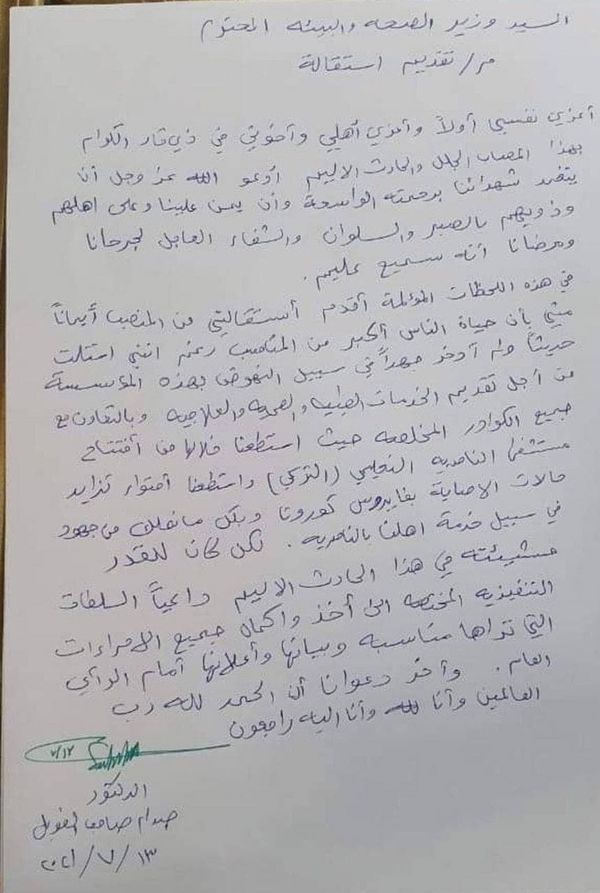 السيد وزير الصحه والبيئه المحترم
م/ تقديم استقالة
أعزي نفسي أولاً وأعزي أهلي وأخوتي في ذي قار الكرام
بهذا المصاب الجلل والحادث الاليم أدعو الله عز وجل أن
يتغمد شهدائنا برحمته الواسعة وأن يمن علينا وعلى اهلهم
وذويهم بالصبر والسلوان والشفاء العاجل لجرحانا
ومرضانا أنه سميع عليم.
في هذه اللحظات المؤلمة أقدم أستقالتي من المنصب أيماناً
مني بأن حياة الناس أكبر من المناصب رغم انني استلمت
حديثاً ولم أدخر جهداً في سبيل النهوض بهذه المؤسسسة
من أجل تقديم الخدمات الطبيه والصحيه والعلاجيه وبالتعاون مع
جميع الكوادر المخلصه حيث استطعنا خلالها من أفتتاح
مستشفى الناصريه التعليمي (التركي) واستطعنا أحتواء تزايد
حالات الاصابة بفايروس كورونا وبكل مانملك من جهود
في سبيل خدمة اهلنا بالناصريه. لكن كان للقدر
مشيئته في هذا الحادث الاليم داعياً السلطات
التنفيذيه المختصه الى أخذ واكمال جميع الاجراءات
التي تراها مناسبه وبيانها وأعلانها أمام الرأي
العام. وأخر دعوانا أن الحمد لله رب
العالمين وأنا لله وأنا اليه راجعون
٧/١٣
الدكتور
صدام صاحب الطويل
٢٠٢١/٧/١٣